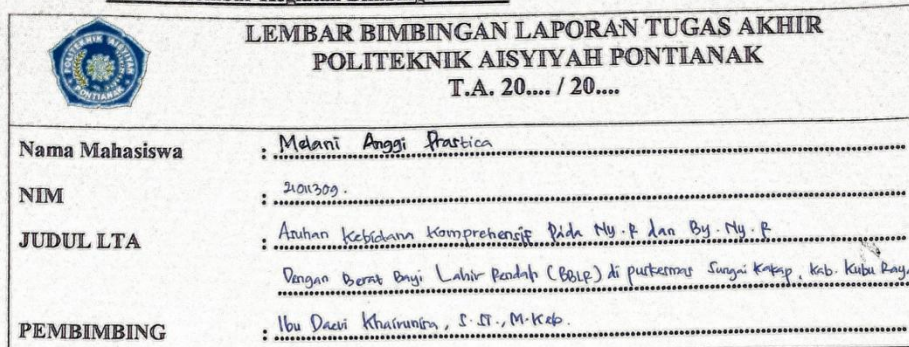 LEMBAR BIMBINGAN LAPORAN TUGAS AKHIR
POLITEKNIK AISYIYAH PONTIANAK
T.A. 20.... / 20....
Nama Mahasiswa : Melani Anggi Prastica
NIM : 21011309.
JUDUL LTA : Asuhan Kebidanan Komprehensif Pada Ny. R dan By. Ny. R
Dengan Berat Bayi Lahir Rendah (BBLR) di puskesmas Sungai Kakap, Kab. Kubu Raya.
PEMBIMBING : Ibu Daevi Khairunisa, S.ST., M.Keb.